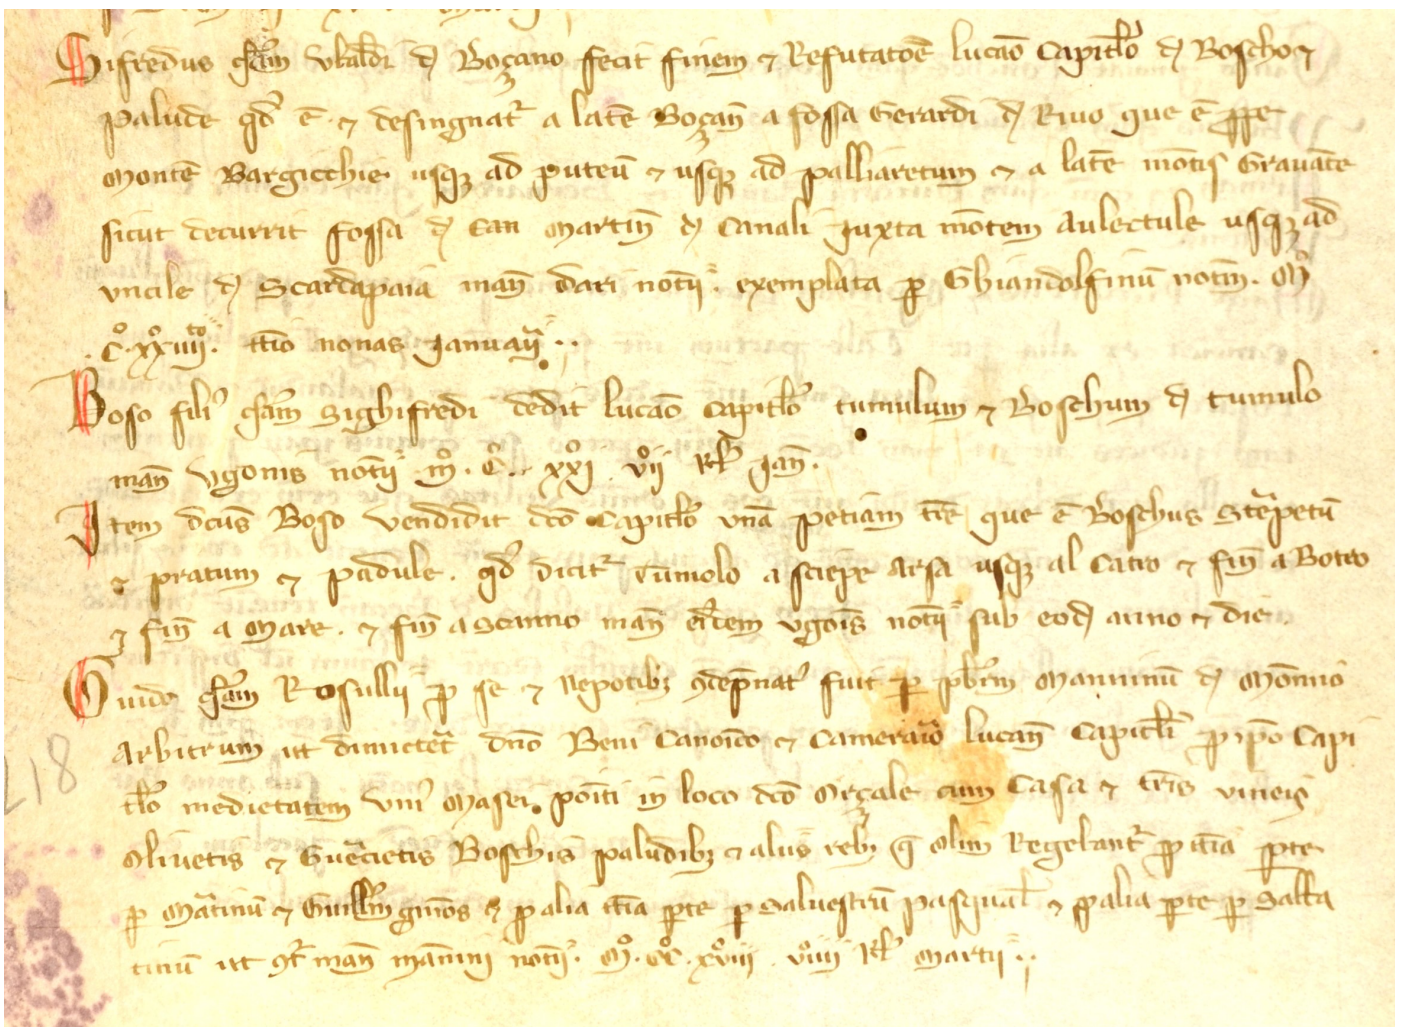 Sifredus qdam Vbaldi d Boçano fecit finem ⁊ Refutatoē lucāo Capitlo d Boscho ⁊
palude qd ē ⁊ desingnat a latē Boçan a fossa Gerardi d Riuo que ē ppe
montē Bargicchie usq ad puteū ⁊ usq ad palliaretum ⁊ a latē mōtis Grauāte
sicut decurrit fossa d Can Martin d Canali juxta mōtem Aulectule usq ad
vncile d Scardapaia man Dari notii exemplata p Ghiandolfinū notm. Mº
.Cº.xxºiiiito. tcio nonas Januarii
Boso filiꝰ qdam Sighifredi dedit lucāo Capitlo tumulum ⁊ Boschum d tumulo
man Vgonis notii mº. Cº. xxºi vºii kl Jan.
Item dcus Boso vendidit dco Capitlo vnā petiam tre que ē Boschus Strapetū
⁊ pratum ⁊ padule. qd dicit Tumolo a sciepe arsa usq al Catro ⁊ fin a Boteo
⁊ fin a Mare. ⁊ fin a Scanno man eidem vgois notii sub eod anno ⁊ die
Guido qdam Rosullii p se ⁊ Nepotibꝫ 9depnatꝰ fuit p pbrm Manninū d Mōnno
Arbitrum ut dimictet dno Beni Canoīco ⁊ Camerario lucan Capitli p ipo Capi
tlo medietatem vniꝰ Masei poiti in loco dco Orçale cum Casa ⁊ tris vineis
Oliuetis ⁊ Guercietis Boschis paludibꝫ ⁊ aliis rebꝫ q olim Regebant p tcia pte
p Martinū ⁊ Guillm gmos ⁊ p alia tcia pte p Saluestrū pasqual ⁊ p alia pte p Salla
tinū ut 9t man mannini notii. Mº.Cº.xºviii vºiiii kl Martii